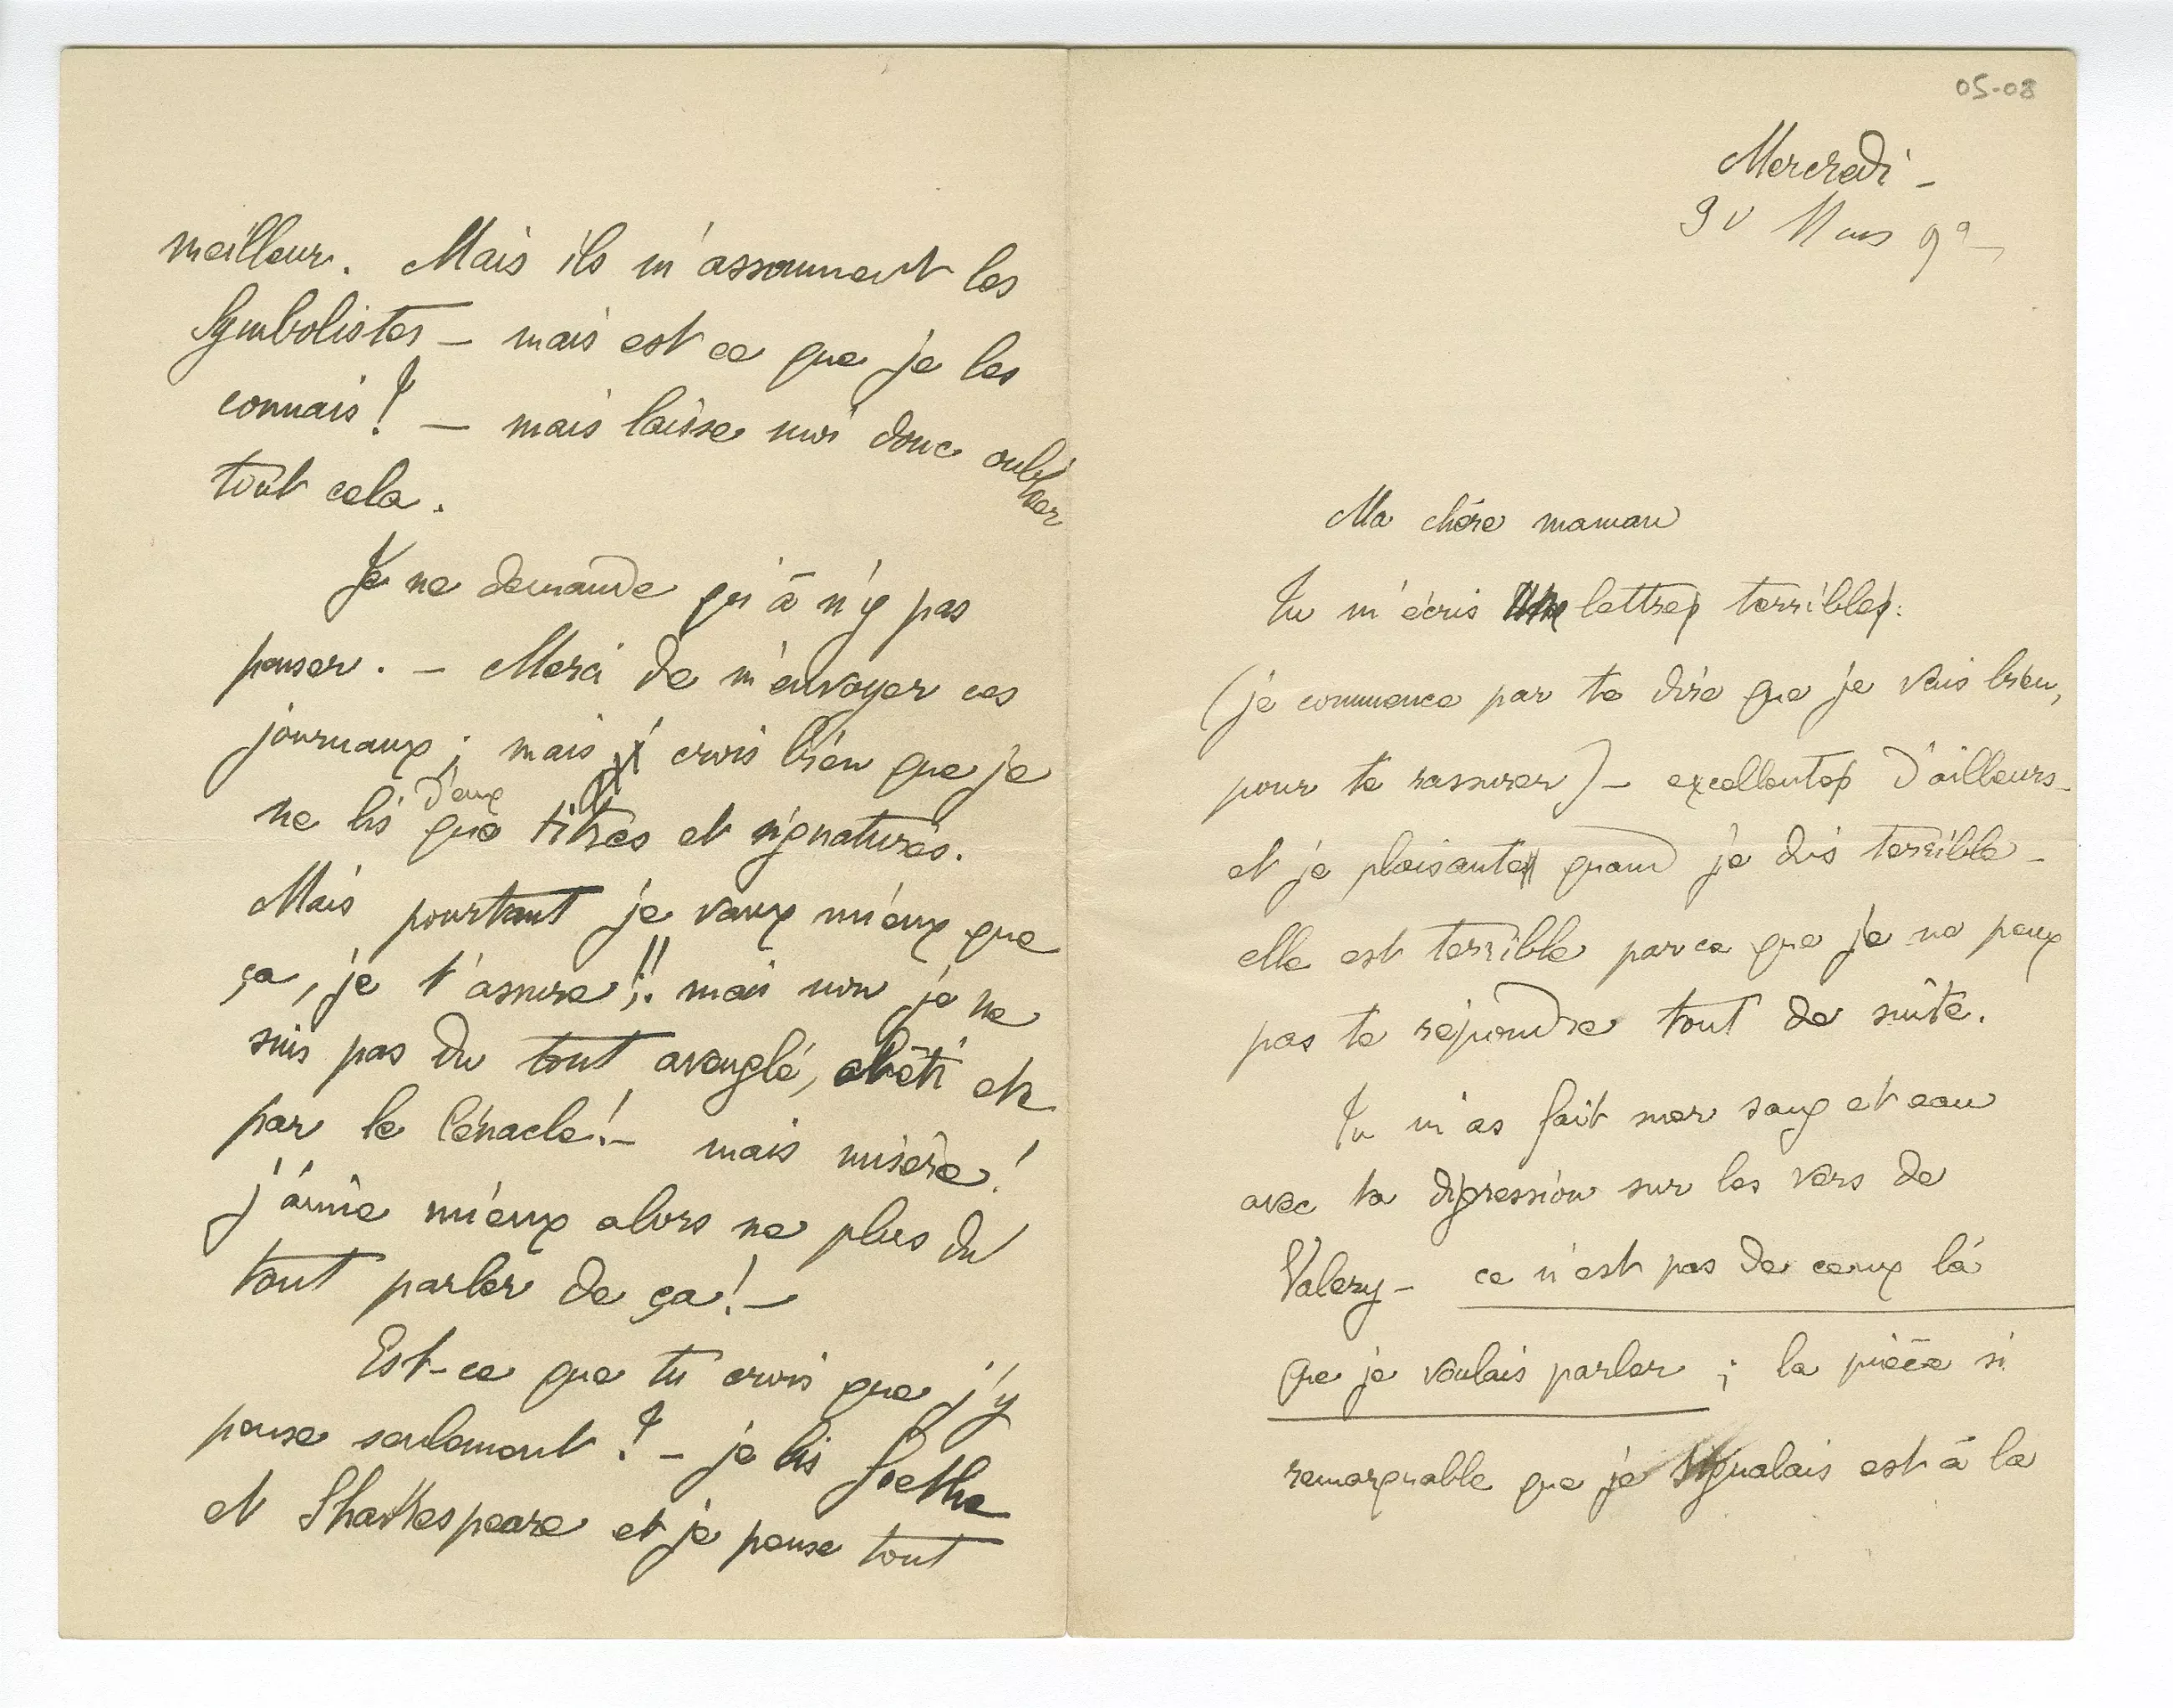 05-08
Mercredi -
30 Mars 92
Ma chère maman
Tu m'écris lettres terribles.
(je commence par te dire que je vais bien,
pour te rassurer) - excellentes d'ailleurs -
et je plaisante quand je dis terrible -
elle est terrible parce que je ne peux
pas te répondre tout de suite.
Tu m'as fait suer sang et eau
avec ta digression sur les vers de
Valery - ce n'est pas de ceux là
que je voulais parler ; la pièce si
remarquable que je signalais est à la
meilleur. Mais ils m'assomment les
Symbolistes - mais est ce que je les
connais ! - mais laisse moi donc oublier
tout cela.
Je ne demande qu'à n'y pas
penser. - Merci de m'envoyer ces
journaux ; mais crois bien que je
ne lis d'eux que titres et signatures.
Mais pourtant je vaux mieux que
ça, je t'assure !! mais non je ne
suis pas du tout aveuglé, abêti etc
par le Cénacle ! - mais misère !
j'aime mieux alors ne plus du
tout parler de ça ! -
Est-ce que tu crois que j'y
pense seulement ? - je lis Goethe
et Shakespeare et je pense tout